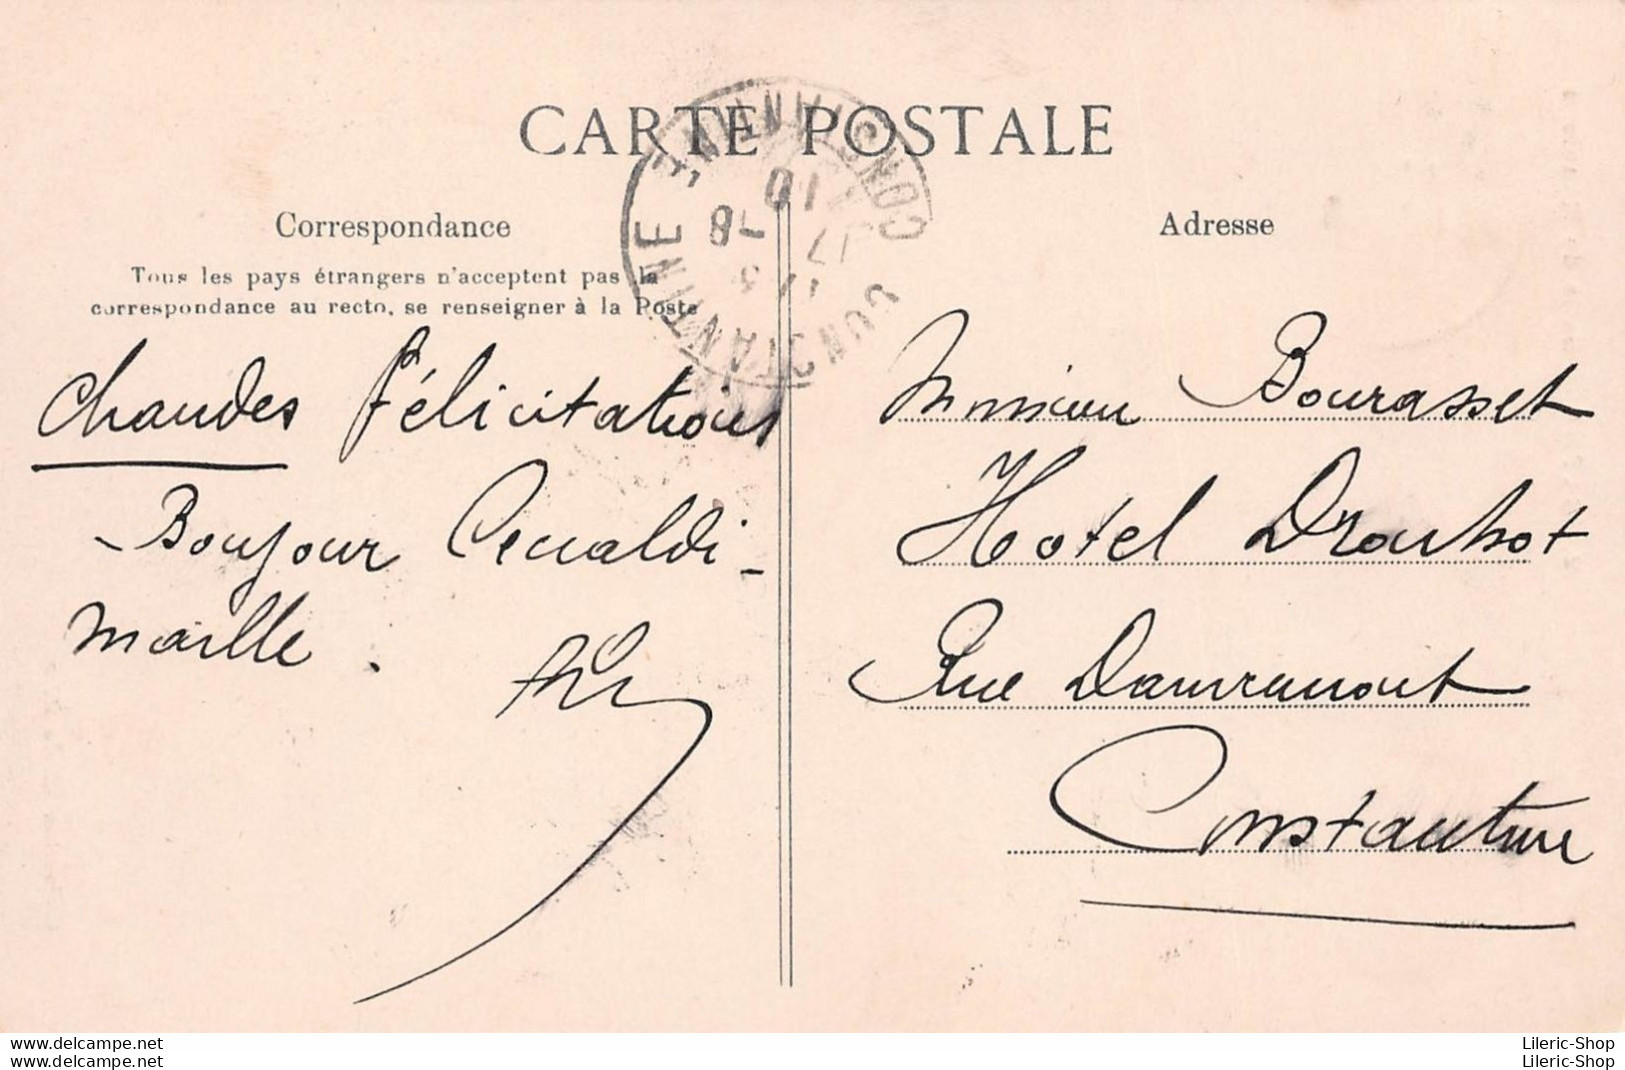 CARTE POSTALE
Correspondance
Tous les pays étrangers n'acceptent pas la
correspondance au recto, se renseigner à la Poste
Chaudes félicitations
- Bonjour
maille.
Adresse
Monsieur Bourasset
Hotel Drouhot
Rue Damremont
Constantine
CONSTANTINE
CONSTANTINE
www.delcampe.net
www.delcampe.net
Lileric-Shop
Lileric-Shop